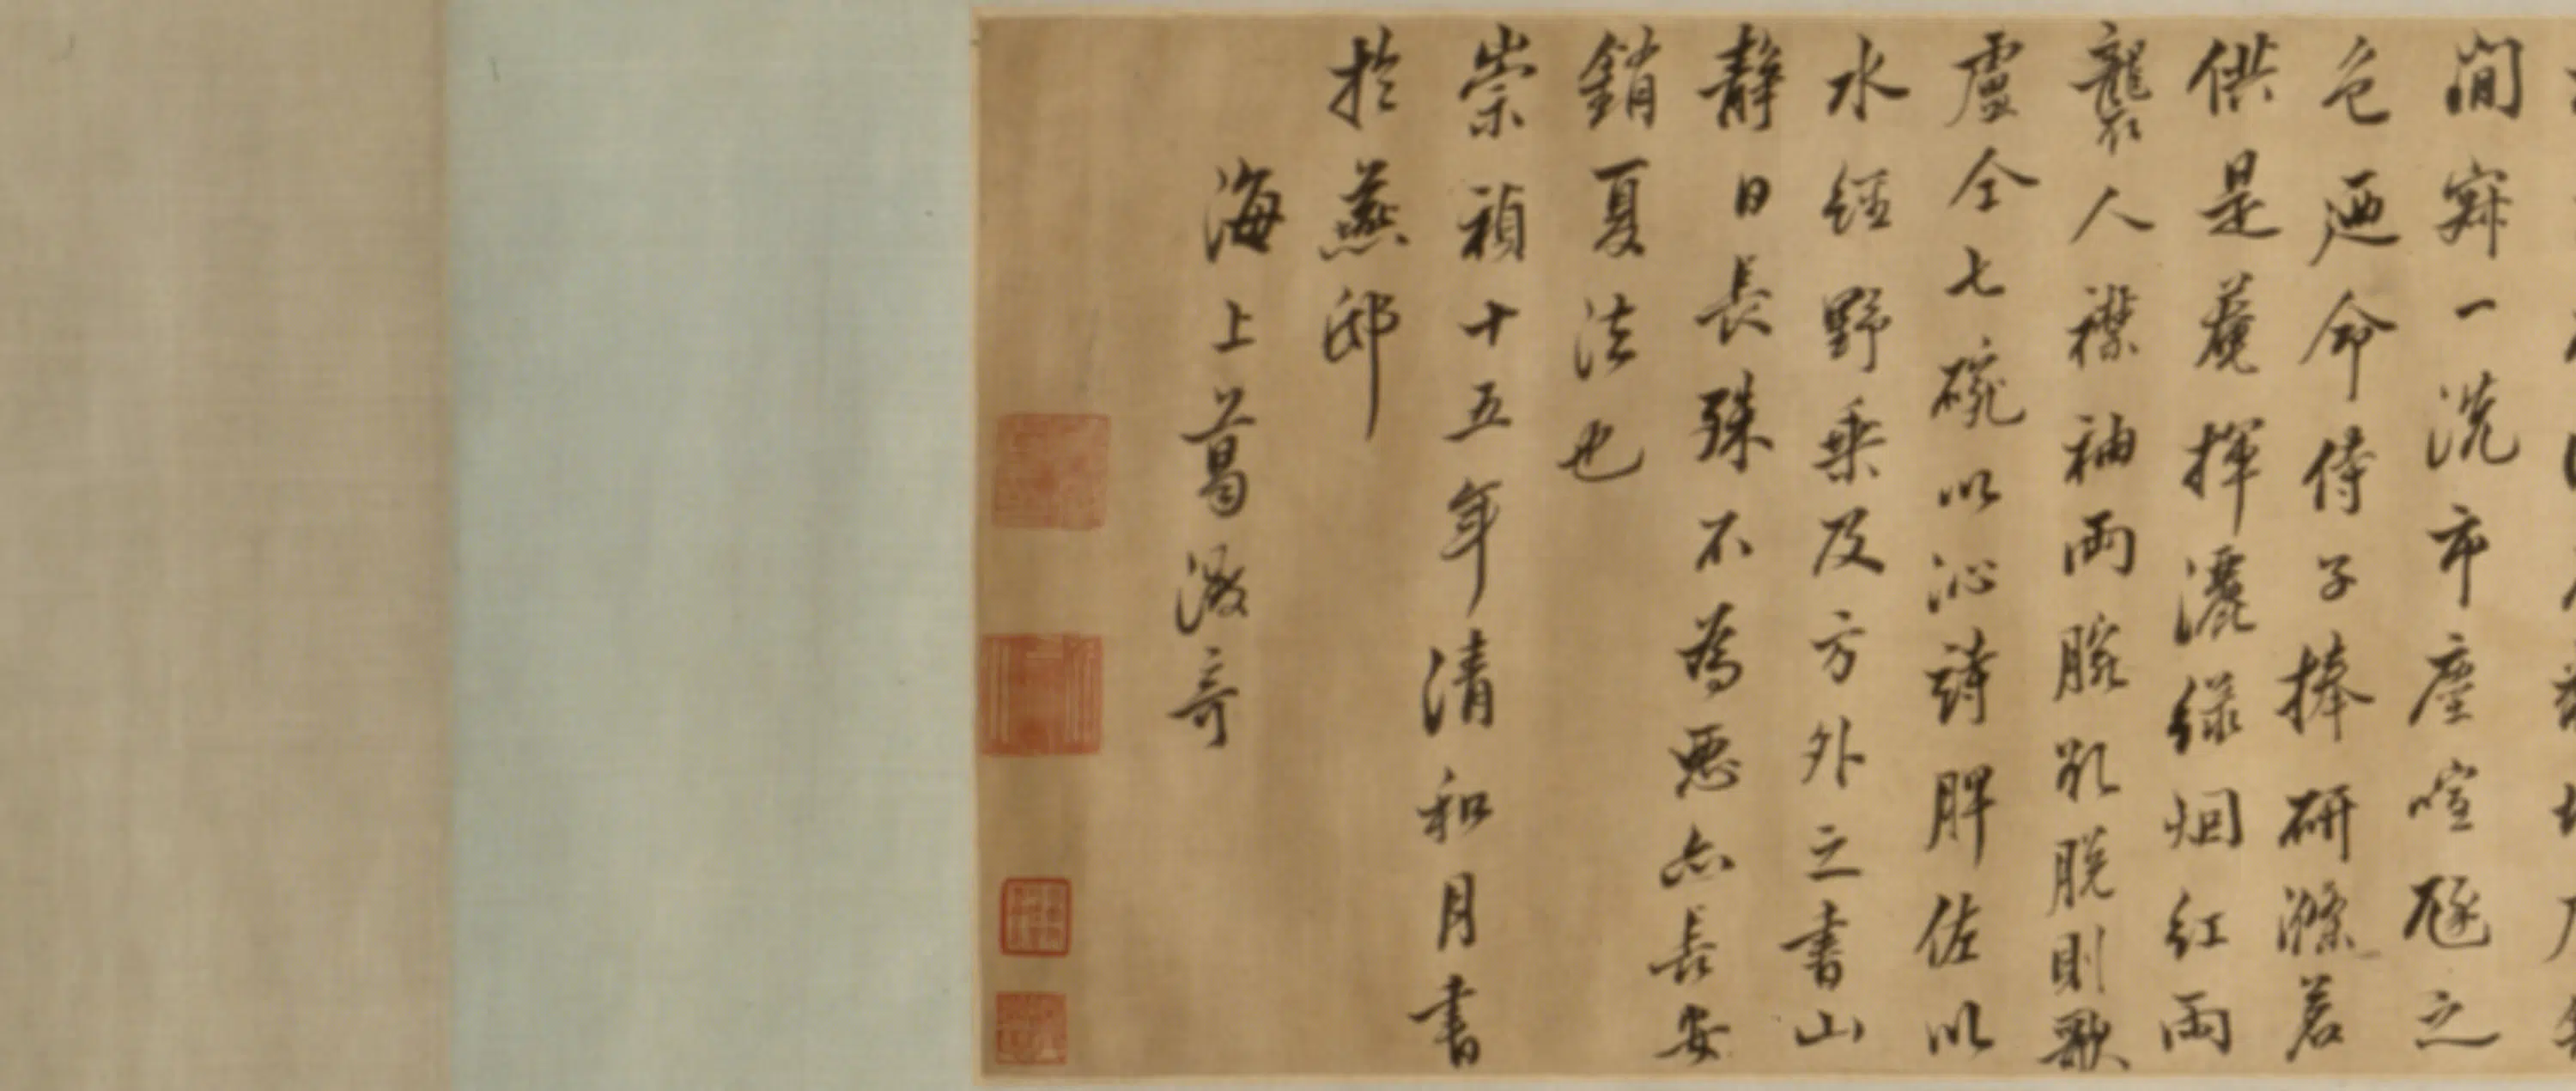 閒寂一洗市塵喧
色迺命侍子捧研滌茗
供是菴揮灑綠烟紅雨
襲人襟袖兩腕欲脫則歌
盧仝七碗以沁詩脾佐以
水經野乘及方外之書山
靜日長殊不為惡亦長安
銷夏法也
崇禎十五年清和月書
於燕邸
海上葛徵奇